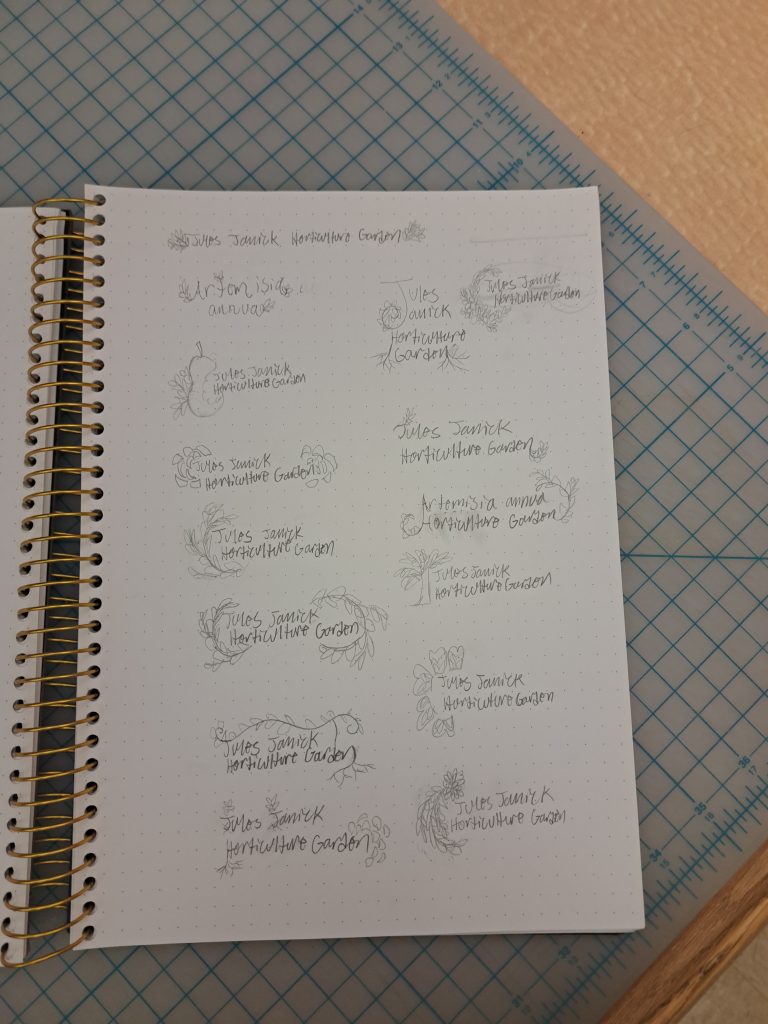 Jules Janick Horticulture Garden
Artemisia
annua
Jules
Janick
Horticulture
Garden
Jules Janick
Horticulture Garden
Jules Janick
Horticulture Garden
Jules Janick
Horticulture Garden
Jules Janick
Horticulture Garden
Artemisia annua
Horticulture Garden
Jules Janick
Horticulture Garden
Jules Janick
Horticulture Garden
Jules Janick
Horticulture Garden
Jules Janick
Horticulture Garden
Jules Janick
Horticulture Garden
Jules Janick
Horticulture Garden
Jules Janick
Horticulture Garden